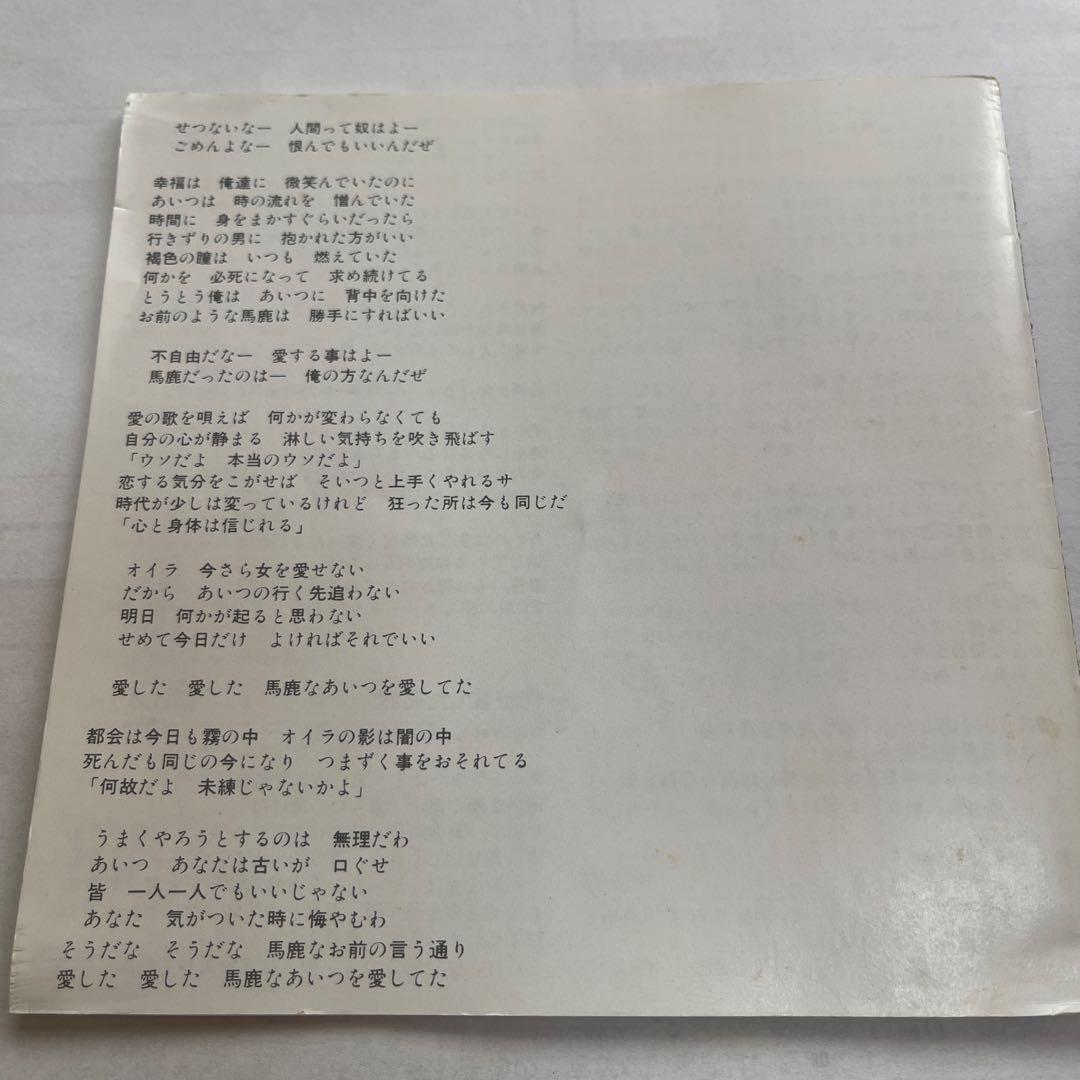 せつないなー　人間って奴はよー
ごめんよなー　恨んでもいいんだぜ
幸福は　俺達に　微笑んでいたのに
あいつは　時の流れを　憎んでいた
時間に　身をまかすぐらいだったら
行きずりの男に　抱かれた方がいい
褐色の瞳は　いつも　燃えていた
何かを　必死になって　求め続けてる
とうとう俺は　あいつに　背中を向けた
お前のような馬鹿は　勝手にすればいい
不自由だなー　愛する事はよー
馬鹿だったのはー　俺の方なんだぜ
愛の歌を唄えば　何かが変わらなくても
自分の心が静まる　淋しい気持ちを吹き飛ばす
「ウソだよ　本当のウソだよ」
恋する気分をこがせば　そいつと上手くやれるサ
時代が少しは変っているけれど　狂った所は今も同じだ
「心と身体は信じれる」
オイラ　今さら女を愛せない
だから　あいつの行く先追わない
明日　何かが起ると思わない
せめて今日だけ　よければそれでいい
愛した　愛した　馬鹿なあいつを愛してた
都会は今日も霧の中　オイラの影は闇の中
死んだも同じの今になり　つまずく事をおそれてる
「何故だよ　未練じゃないかよ」
うまくやろうとするのは　無理だわ
あいつ　あなたは古いが　口ぐせ
皆　一人一人でもいいじゃない
あなた　気がついた時に悔やむわ
そうだな　そうだな　馬鹿なお前の言う通り
愛した　愛した　馬鹿なあいつを愛してた